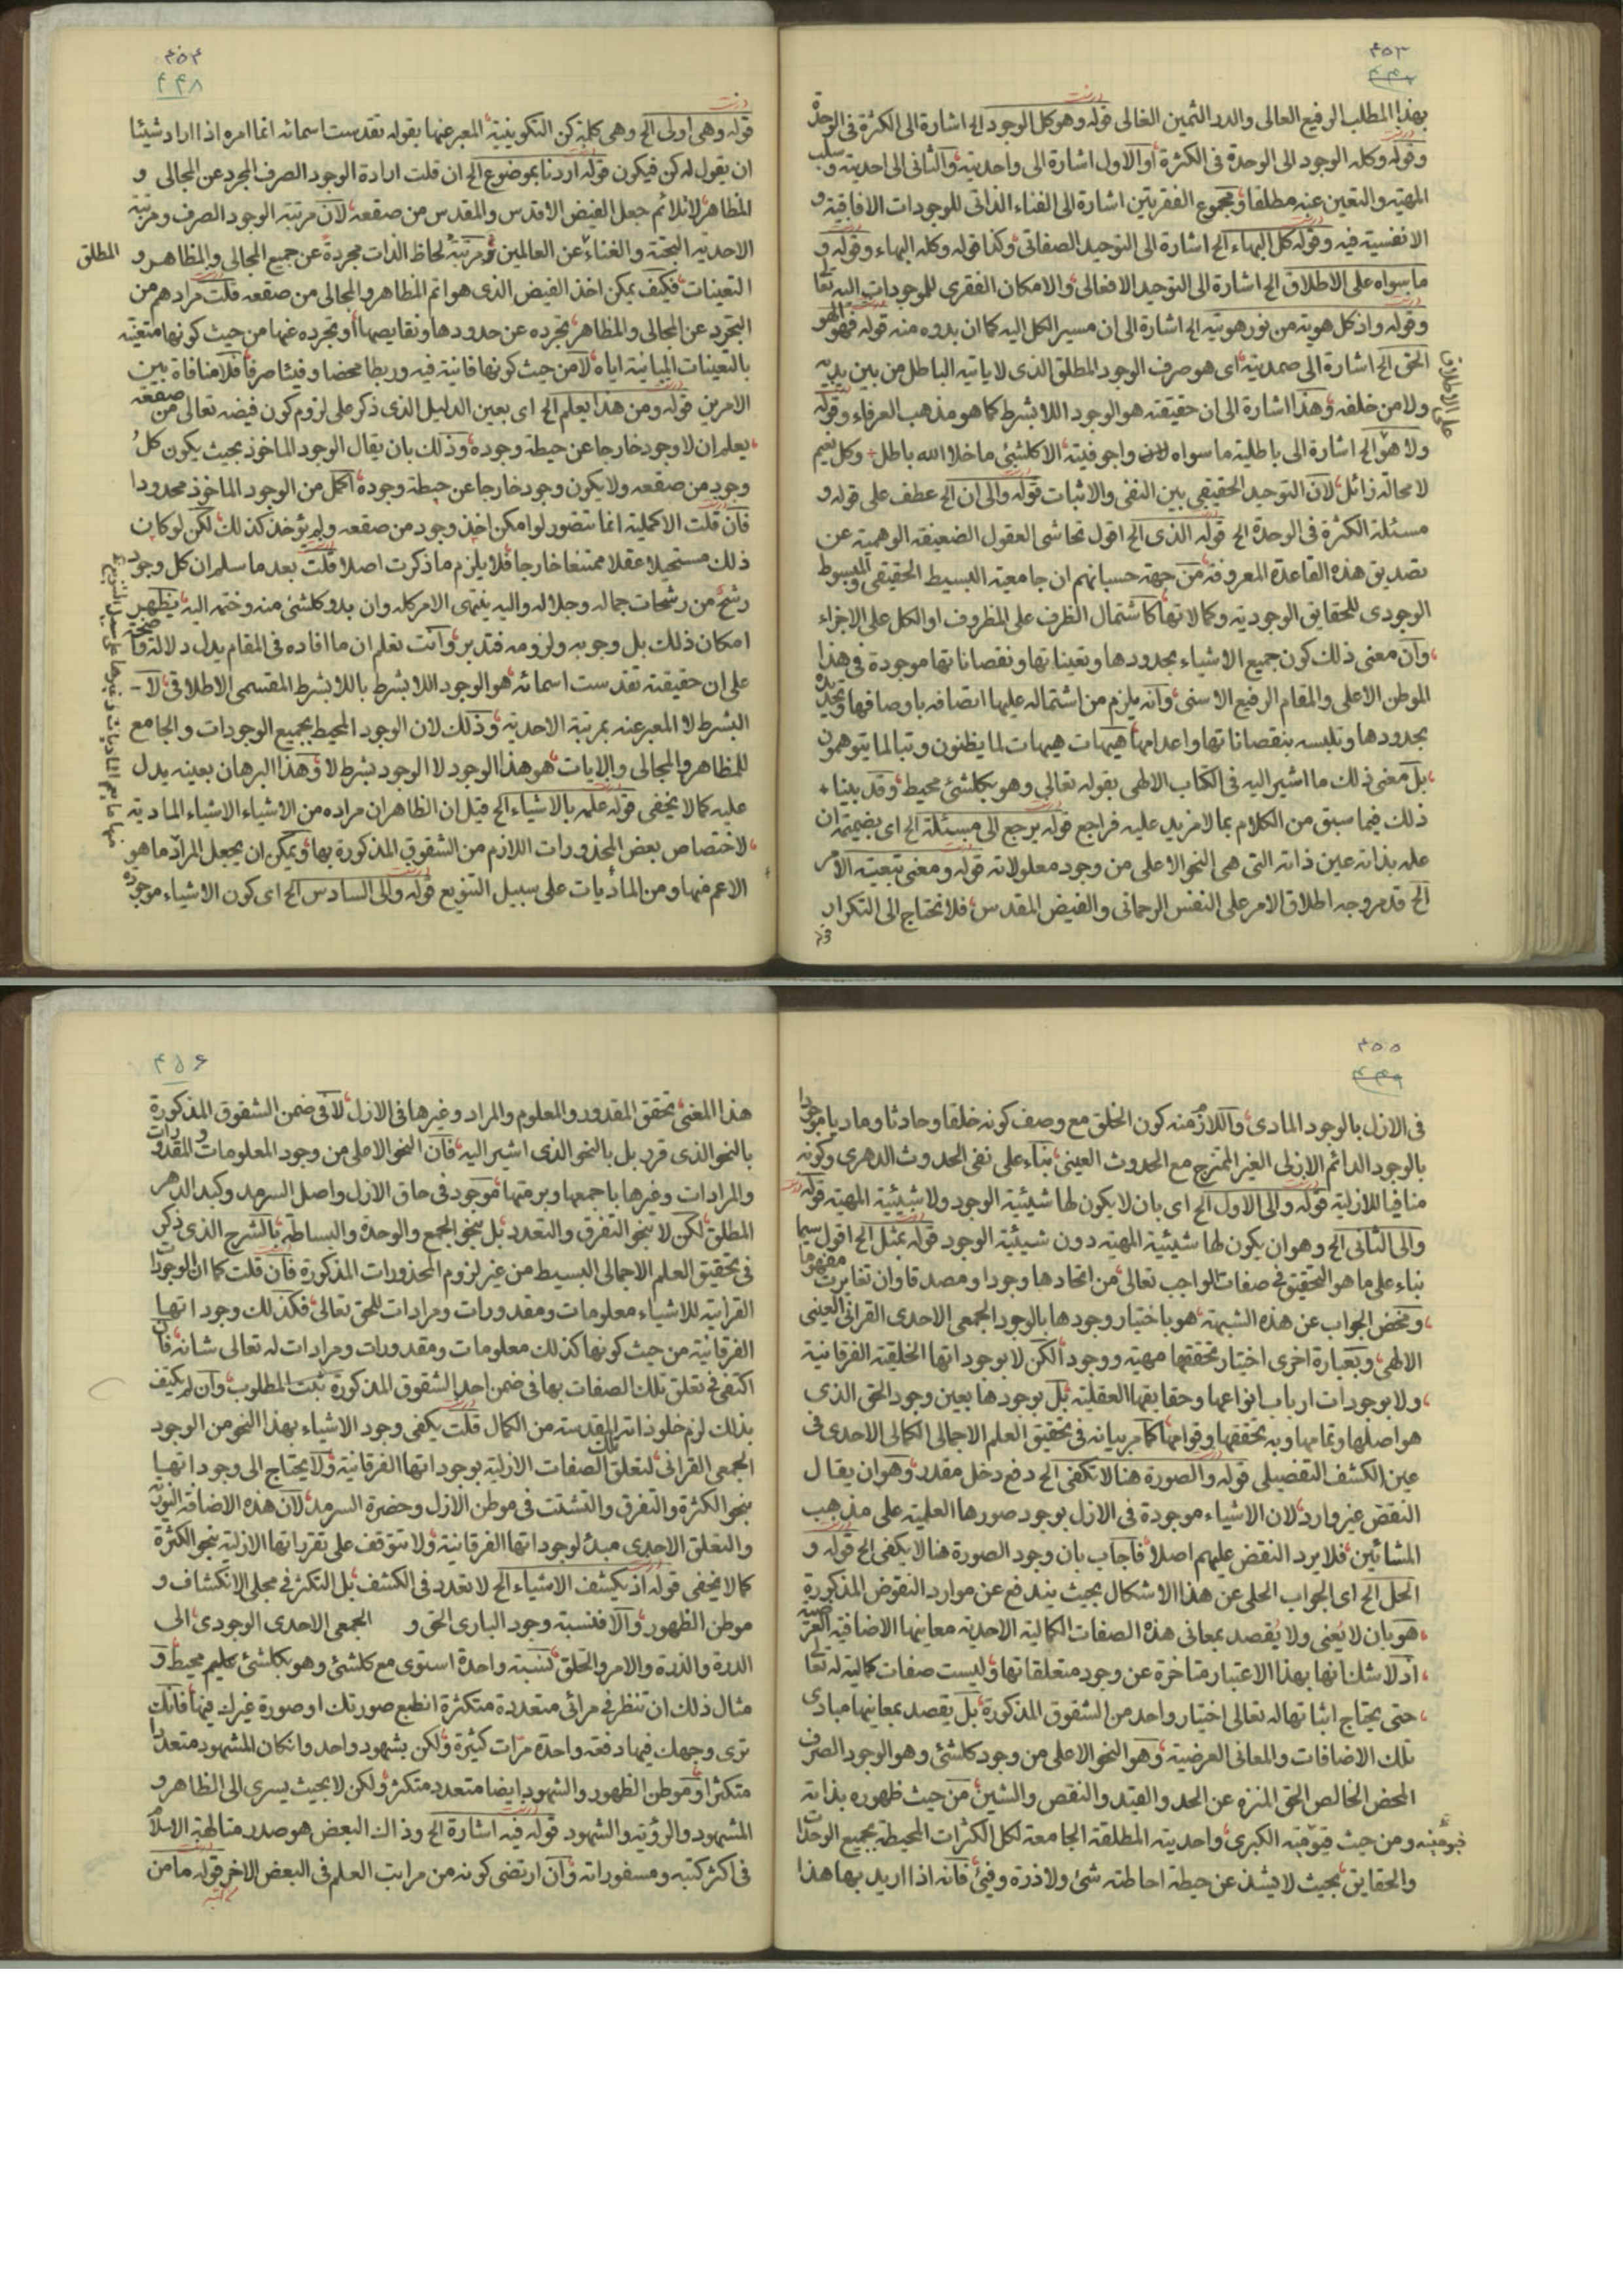 ۴۵۳
بهذا المطلب الرفيع العالى والدر الثمين الغالى قوله وهو كل الوجود الخ اشارة الى الكثرة فى الوحدة
وقوله وكله الوجود الى الوحدة فى الكثرة او الاول اشارة الى واحديته والثانى الى احديته وسلب
المهية والتعين عنه مطلقا ومجموع الفقرتين اشارة الى الفناء الذاتى للوجودات الافاقية و
الانفسية فيه وقوله كل البهاء الخ اشارة الى التوحيد الصفاتى وكذا قوله وكله البهاء وقوله و
ما سواه على الاطلاق الخ اشارة الى التوحيد الافعالى والامكان الفقرى للموجودات اليه تعا
وقوله واذ كل هوية من نور هويته الخ اشارة الى ان مسير الكل اليه كما ان بدوه منه قوله فهو الهو
الحق الخ اشارة الى صمديته اى هو صرف الوجود المطلق الذى لا ياتيه الباطل من بين يديه
ولا من خلفه وهذا اشارة الى ان حقيقته هو الوجود اللا بشرط كما هو مذهب العرفاء وقوله
ولا هو الخ اشارة الى باطلية ما سواه واجوفيته الا كلشئ ما خلا الله باطل وكل نعيم
لا محالة زائل لان التوحيد الحقيقى بين النفى والاثبات قوله والى ان الخ عطف على قوله و
مسئلة الكثرة فى الوحدة الخ قوله الذى الخ اقول تحاشى العقول الضعيفة الوهمية عن
تصديق هذه القاعدة المعروفة من جهة حسبانهم ان جامعية البسيط الحقيقى والمبسوط
الوجودى للحقايق الوجودية وكمالاتها كاشتمال الظرف على المظروف او الكل على الاجزاء
وان معنى ذلك كون جميع الاشياء بحدودها وتعيناتها ونقصاناتها موجودة فى هذا
الموطن الاعلى والمقام الرفيع الاسنى وانه يلزم من اشتماله عليها اتصافه باوصافها وتحدده
بحدودها وتلبسه بنقصاناتها واعدامها هيهات هيهات لما يظنون وتبا لما يتوهمون
بل معنى ذلك ما اشير اليه فى الكتاب الالهى بقوله تعالى وهو بكلشئ محيط وقد بينا
ذلك فيما سبق من الكلام بما لا مزيد عليه فراجع قوله يرجع الى مسئلة الخ اى بضميمة ان
علمه بذاته عين ذاته التى هى النحو الاعلى من وجود معلولاته قوله ومعنى تبعية الامر
الخ قد مر وجه اطلاق الامر على النفس الرحمانى والفيض المقدس فلا نحتاج الى التكرار
قوله
۴۵۴
۴۴۸
قوله وهى اولى الخ وهى كلمة كن التكوينية المعبر عنها بقوله تقدست اسمائه انما امره اذا اراد شيئا
ان يقول له كن فيكون قوله اردنا بموضوع الخ ان قلت ارادة الوجود الصرف المجرد عن المجالى و
المظاهر لا تلائم جعل الفيض الاقدس والمقدس من صقعه لان مرتبة الوجود الصرف ومرتبة
الاحدية البحتة والغناء عن العالمين ومرتبة لحاظ الذات مجردة عن جميع المجالى والمظاهر و
المطلق
التعينات فكيف يمكن اخذ الفيض الذى هو اتم المظاهر والمجالى من صقعه قلت مرادهم من
التجرد عن المجالى والمظاهر تجرده عن حدودها ونقايصها او تجرده عنها من حيث كونها متعينة
بالتعينات المباينة اياه لا من حيث كونها فانية فيه وربطا محضا وفيئا صرفا فلا منافاة بين
الامرين قوله ومن هذا يعلم الخ اى بعين الدليل الذى ذكر على لزوم كون فيضه تعالى من صقعه
يعلم ان لا وجود خارجا عن حيطة وجوده وذلك بان يقال الوجود الماخوذ بحيث يكون كل
وجود من صقعه ولا يكون وجود خارجا عن حيطة وجوده اكمل من الوجود الماخوذ محدودا
فان قلت الاكملية انما تتصور لو امكن اخذ وجود من صقعه ولم يؤخذ كذلك لكن لو كان
ذلك مستحيلا عقلا ممتنعا خارجا فلا يلزم ما ذكرت اصلا قلت بعد ما سلم ان كل وجود
رشح من رشحات جماله وجلاله واليه ينتهى الامر كله وان بدو كلشئ منه وختمه اليه يظهر
امكان ذلك بل وجوبه ولزومه فتدبر وانت تعلم ان ما افاده فى المقام يدل دلالة واضحة
على ان حقيقته تقدست اسمائه هو الوجود اللا بشرط باللا بشرط المقسمى الاطلاقى لا
البشرط لا المعبر عنه بمرتبة الاحدية وذلك لان الوجود المحيط بجميع الوجودات والجامع
للمظاهر والمجالى والايات هو هذا الوجود لا الوجود بشرط لا وهذا البرهان بعينه يدل
عليه كما لا يخفى قوله علمه بالاشياء الخ قيل ان الظاهر ان مراده من الاشياء الاشياء المادية
لاختصاص بعض المحذورات اللازم من الشقوق المذكورة بها ويمكن ان يجعل المراد ما هو
الاعم منها ومن الماديات على سبيل التنويع قوله والى السادس الخ اى كون الاشياء موجودة
۴۵۵
فى الازل بالوجود المادى واللازم منه كون الخلق مع وصف كونه خلقا وحادثا وماديا موجودا
بالوجود الدائم الازلى الغير الممتزج مع الحدوث العينى بناء على نفى الحدوث الدهرى وكونه
منافيا للازلية قوله والى الاول الخ اى بان لا يكون لها شيئية الوجود ولا شيئية المهية قوله
والى الثانى الخ وهو ان يكون لها شيئية المهية دون شيئية الوجود قوله بمثل الخ اقول سيما
بناء على ما هو التحقيق فى صفات الواجب تعالى من اتحادها وجودا ومصدقا وان تغايرت مفهوما
ومخض الجواب عن هذه الشبهة هو باختيار وجودها بالوجود الجمعى الاحدى القرانى العينى
الالهى وبعبارة اخرى اختيار تحققها مهية ووجودا لكن لا بوجوداتها الخلقية الفرقانية
ولا بوجودات ارباب انواعها وحقايقها العقلية بل بوجودها بعين وجود الحق الذى
هو اصلها وتمامها وبه تحققها وقوامها كما مر بيانه فى تحقيق العلم الاجمالى الكمالى الاحدى فى
عين الكشف التفصيلى قوله والصورة هنا لا تكفى الخ دفع دخل مقدر وهو ان يقال
النقض غير وارد لان الاشياء موجودة فى الازل بوجود صورها العلمية على مذهب
المشائين فلا يرد النقض عليهم اصلا فاجاب بان وجود الصورة هنا لا يكفى الخ قوله و
الحل الخ اى الجواب الحلى عن هذا الاشكال بحيث يندفع عن موارد النقوض المذكورة
هو بان لا يعنى ولا يقصد بمعانى هذه الصفات الكمالية الاحدية معانيها الاضافية العرضية
اذ لا شك انها بهذا الاعتبار متاخرة عن وجود متعلقاتها وليست صفات كمالية له تعا
حتى يحتاج اثباتها له تعالى اختيار واحد من الشقوق المذكورة بل يقصد بمعانيها مبادى
تلك الاضافات والمعانى العرضية وهو النحو الاعلى من وجود كلشئ وهو الوجود الصرف
المحض الخالص الحق المنزه عن الحد والقيد والنقص والشين من حيث ظهوره بذاته
ومن حيث قيوميته الكبرى وواحديته المطلقة الجامعة لكل الكثرات المحيطة بجميع الوحدات
والحقايق بحيث لا يشذ عن حيطة احاطته شئ ولا ذرة وفيئ فانه اذا اريد بها هذا
۴۵۶
هذا المعنى تحقق المقدور والمعلوم والمراد وغيرها فى الازل لا فى ضمن الشقوق المذكورة
بالنحو الذى قرر بل بالنحو الذى اشير اليه فان النحو الاعلى من وجود المعلومات والمقدورات
والمرادات وغيرها باجمعها وبرمتها موجود فى حاق الازل واصل السرمد وكبد الدهر
المطلق لكن لا بنحو التفرق والتعدد بل بنحو الجمع والوحدة والبساطة بالشرح الذى ذكر
فى تحقيق العلم الاجمالى البسيط من غير لزوم المحذورات المذكورة فان قلت كما ان الوجودات
القرانية للاشياء معلومات ومقدورات ومرادات للحق تعالى فكذلك وجوداتها
الفرقانية من حيث كونها كذلك معلومات ومقدورات ومرادات له تعالى شانه فان
اكتفى فى تعلق تلك الصفات بها فى ضمن احد الشقوق المذكورة ثبت المطلوب وان لم يكتف
بذلك لزم خلو ذاته المقدسة من الكمال قلت يكفى وجود الاشياء بهذا النحو من الوجود
الجمعى القرانى لتعلق تلك الصفات الازلية بوجوداتها الفرقانية ولا يحتاج الى وجوداتها
بنحو الكثرة والتفرق والتشتت فى موطن الازل وحضرة السرمد لان هذه الاضافة النورية
والتعلق الاحدى مبدء لوجوداتها الفرقانية ولا تتوقف على تقرراتها الازلية بنحو الكثرة
كما لا يخفى قوله اذ بكشف الاشياء الخ لا تعدد فى الكشف بل التكثر فى مجلى الانكشاف و
موطن الظهور والا فنسبة وجود البارى الحق و الجمعى الاحدى الوجودى الى
الدرة والذرة والامر والخلق نسبة واحدة استوى مع كلشئ وهو بكلشئ عليم محيط و
مثال ذلك ان تنظر فى مرائى متعددة متكثرة انطبع صورتك او صورة غيرك فيها فانك
ترى وجهك فيها دفعة واحدة مرات كثيرة ولكن بشهود واحد وانكان المشهود متعددا
متكثرا وموطن الظهور والشهود ايضا متعدد متكثر ولكن لا بحيث يسرى الى الظاهر و
المشهود والرؤية والشهود قوله فيه اشارة الخ وذاك البعض هو صدر متالهة الاسلام
فى اكثر كتبه ومسفوراته وان ارتضى كونه من مراتب العلم فى البعض الاخر قوله ما من